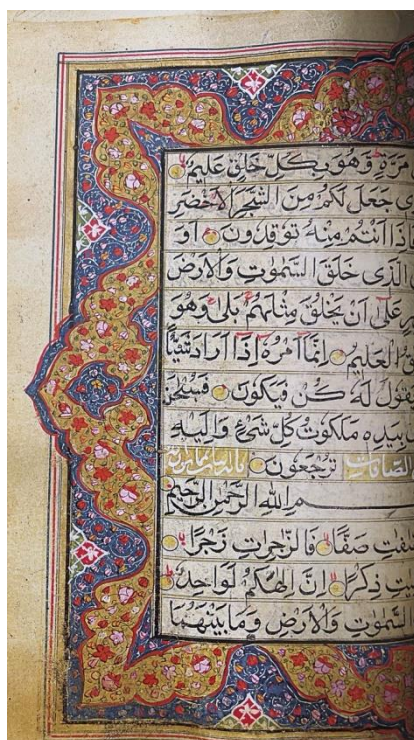 مَرَّةٍ وَهُوَ بِكُلِّ خَلْقٍ عَلِيمٌ
جَعَلَ لَكُمْ مِنَ الشَّجَرِ الْأَخْضَرِ
فَاِذَا اَنْتُمْ مِنْهُ تُوقِدُونَ اَوَ
الَّذِى خَلَقَ السَّمٰوٰتِ وَالْاَرْضَ
عَلٰى اَنْ يَخْلُقَ مِثْلَهُمْ بَلٰى وَهُوَ
الْعَلِيمُ اِنَّمَا اَمْرُهُ اِذَا اَرَادَ شَيْئًا
يَقُولَ لَهُ كُنْ فَيَكُونُ فَسُبْحٰنَ
بِيَدِهِ مَلَكُوتُ كُلِّ شَىْءٍ وَاِلَيْهِ
الصافات تُرْجَعُونَ
بِسْمِ اللهِ الرَّحْمٰنِ الرَّحِيمِ
صَفًّا فَالزّٰجِرٰتِ زَجْرًا
ذِكْرًا اِنَّ اِلٰهَكُمْ لَوَاحِدٌ
السَّمٰوٰتِ وَالْاَرْضِ وَمَا بَيْنَهُمَا